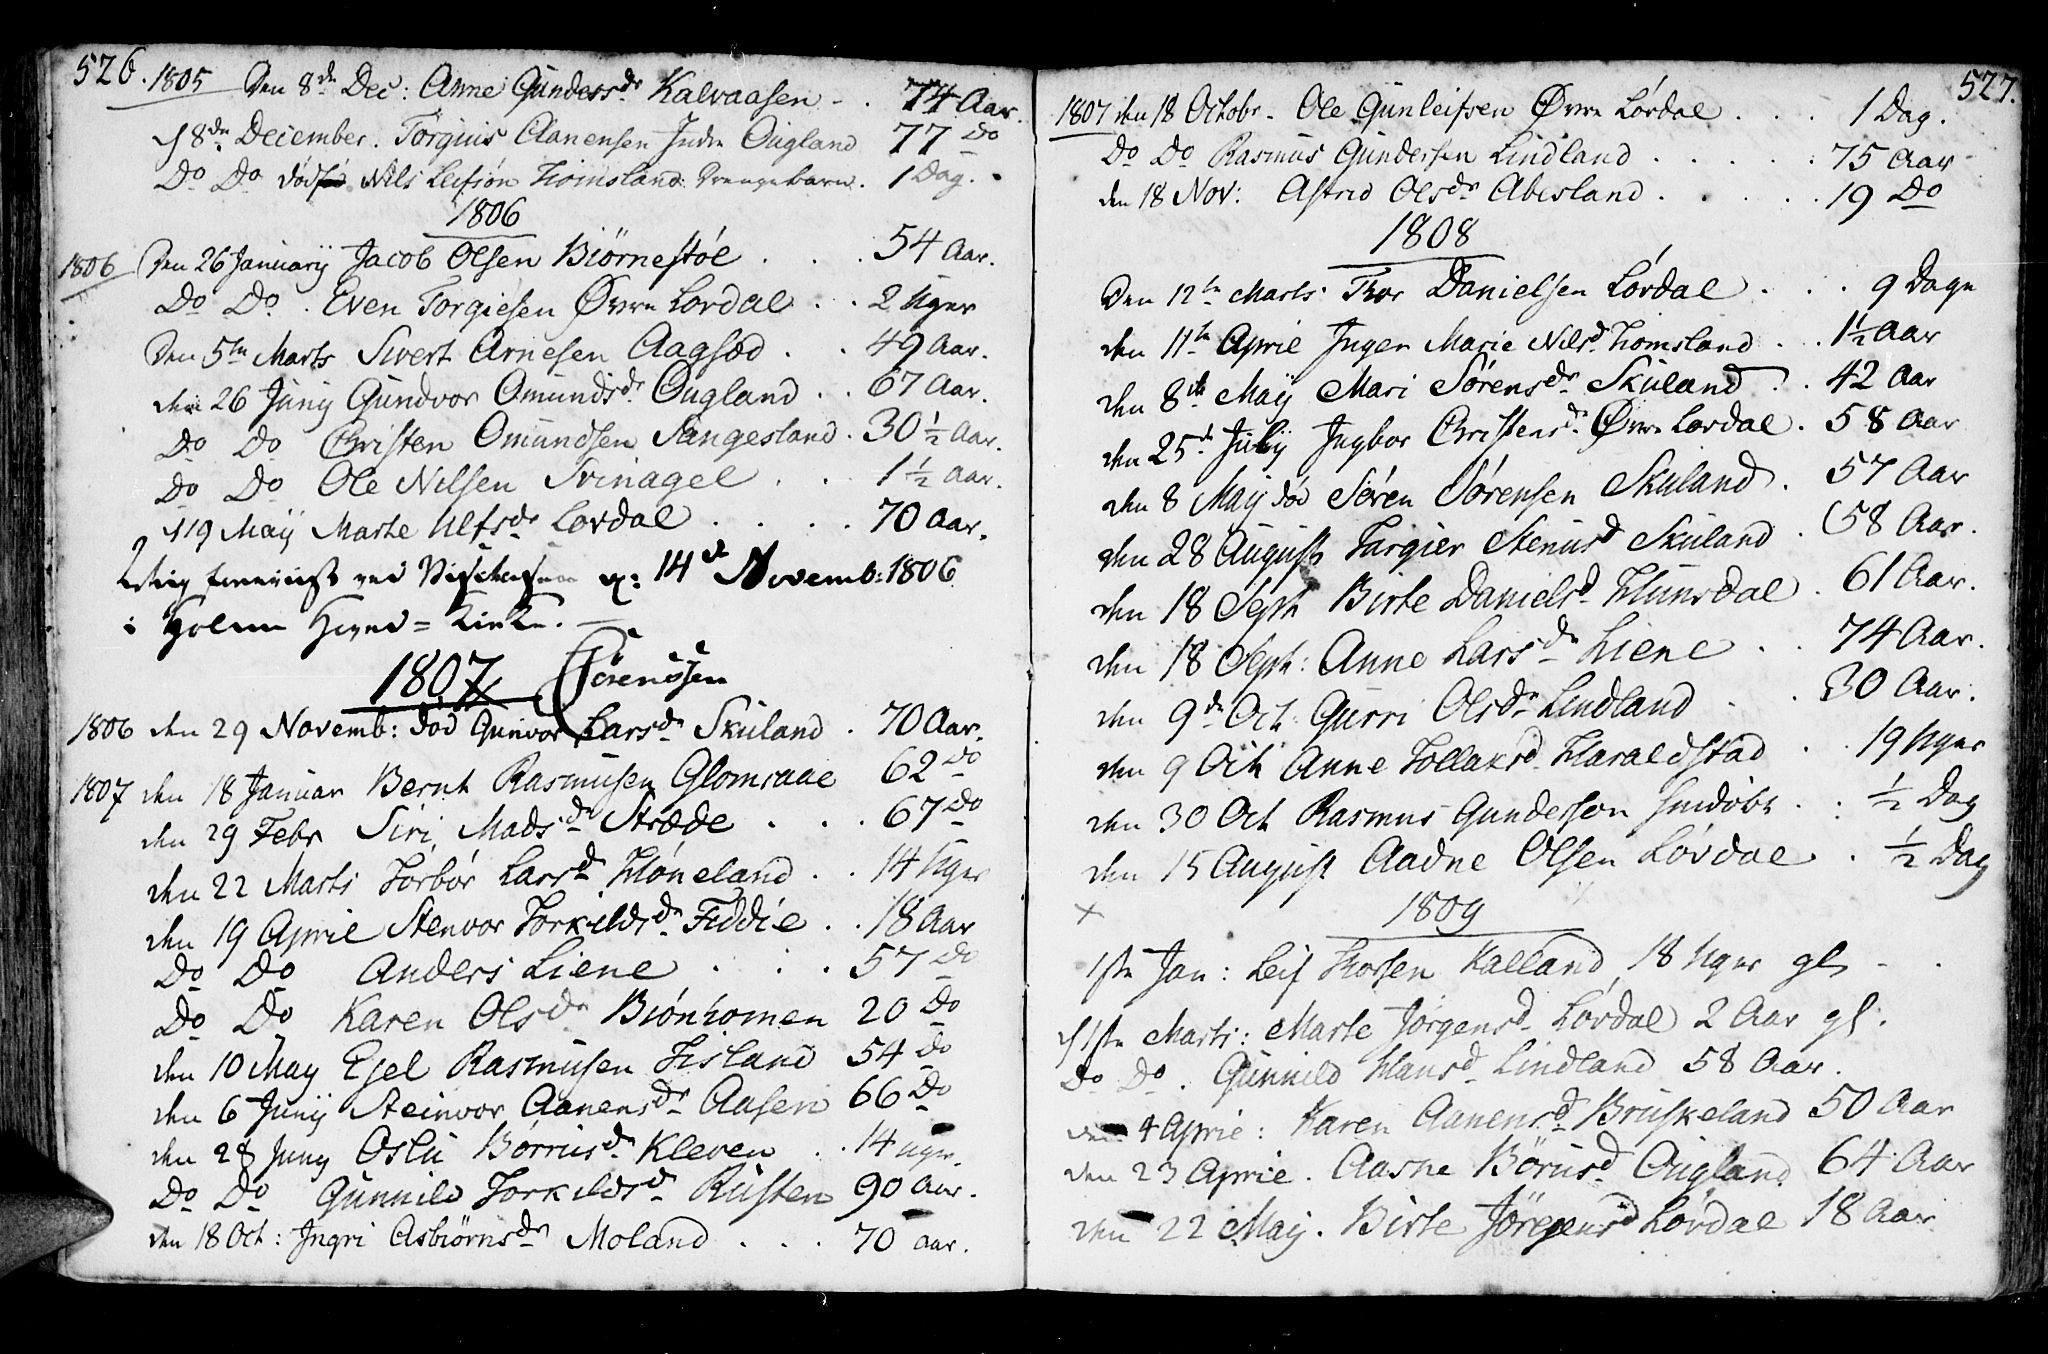 526.
1805 Den 8de Dec: Anne Gundersdr Kalvaasen - . 74 Aar.
d 8de December. Torgius Aanensen Indre Øugland 77 Do
Do Do død Nils Leifsøn Homsland Drengebarn. 1 Dag.
1806
1806 Den 26 Januarÿ Jacob Olsen Biørnestøl . . . 54 Aar.
Do Do . Even Torgiesen Øvre Lørdal . . 2 Uger
Den 5te Marts Sivert Arnesen Aagsød . . 49 Aar.
den 26 Junÿ Gundvor Omundsdr Øugland . . 67 Aar.
Do Do Christen Omundsen Sangesland . 30 1/2 Aar.
Do Do Ole Nilsen Svinagel . . . 1 1/2 Aar.
d 19 Maÿ Marte Ulfsdr Lordal . . . . 70 Aar.
14de Novemb: 1806
i Holum Hoved = Kirke.
Sørenssen
1807
1806 den 29 Novemb: død Gunvor Larsdr Skuland . 70 Aar.
1807 den 18 Januar Bernt Rasmusen Glomsaae 62 Do
den 29 Febr Siri Madsdr Stræde . . . 67 Do
den 22 Marts Torbor Larsdr Høneland . . 14 Uger
den 19 April Stenvor Torkildsdr Fiddie . . 18 Aar
Do Do Anders Liene . . . 57 Do
Do Do Karen Olsdr Biønhomen 20 Do
den 10 May Egel Rasmusen Fisland 54 Do
den 6 Junÿ Steinvor Aanensdr Aasen 66 Do
den 28 Juny Oslu Børrusdr Kleven . . 14 uger.
Do Do Gunnild Torkildsdr Rusten 90 Aar.
den 18 Oct: Ingri Asbiørnsdr Moland . . . 70 aar.
527.
1807 den 18 Octobr - Ole Gunleifsen Øvre Lørdal . . . 1 Dag.
Do Do Rasmus Gundersen Lindland . . . . . 75 Aar
den 18 Nov: Astrid Olsdr Abesland . . . . . 19 Do
1808
Den 12te Marts Thor Danielsen Lørdal . . . 9 Dage
den 11te April Inger Marie Nilsd Homsland . . 1 1/2 Aar
den 8de Maÿ Mari Sørensdr Skuland . . 42 Aar
den 25de Julÿ Ingbor Christensd. Øvre Lordal . 58 Aar
den 8 Maÿ død Søren Sørensen Skuland . 57 Aar
den 28 August Targier Stenusd Skuland . 58 Aar.
den 18 Sept Birte Danielsd Hunsdal . 61 Aar.
den 18 Sept: Anne Larsdr Liene . . 74 Aar.
den 9de Oct: Gurri Olsdr Lindland . . 30 Aar.
den 9 Oct Anne Tollaksd Haraldstad . . 19 Uger
den 30 Oct Rasmus Gunderson . : 1/2 Dag
den 15 August Aadne Olsen Lovdal . 1/2 Dag
1809
1ste Jan: Leif Thorsen Kalland 18 Uger gl. - .
d 1ste Marts: Marte Jørgensd Lovdal 2 Aar gl.
Do Do. Gunnild Hansd Lindland 58 Aar.
den 4 April: Karen Aanensd Bruskeland 50 Aar
den 23 April. Aasne Børusd Øugland 64 Aar
den 22 Maÿ. Birte Jørgensd Lovdal 18 Aar